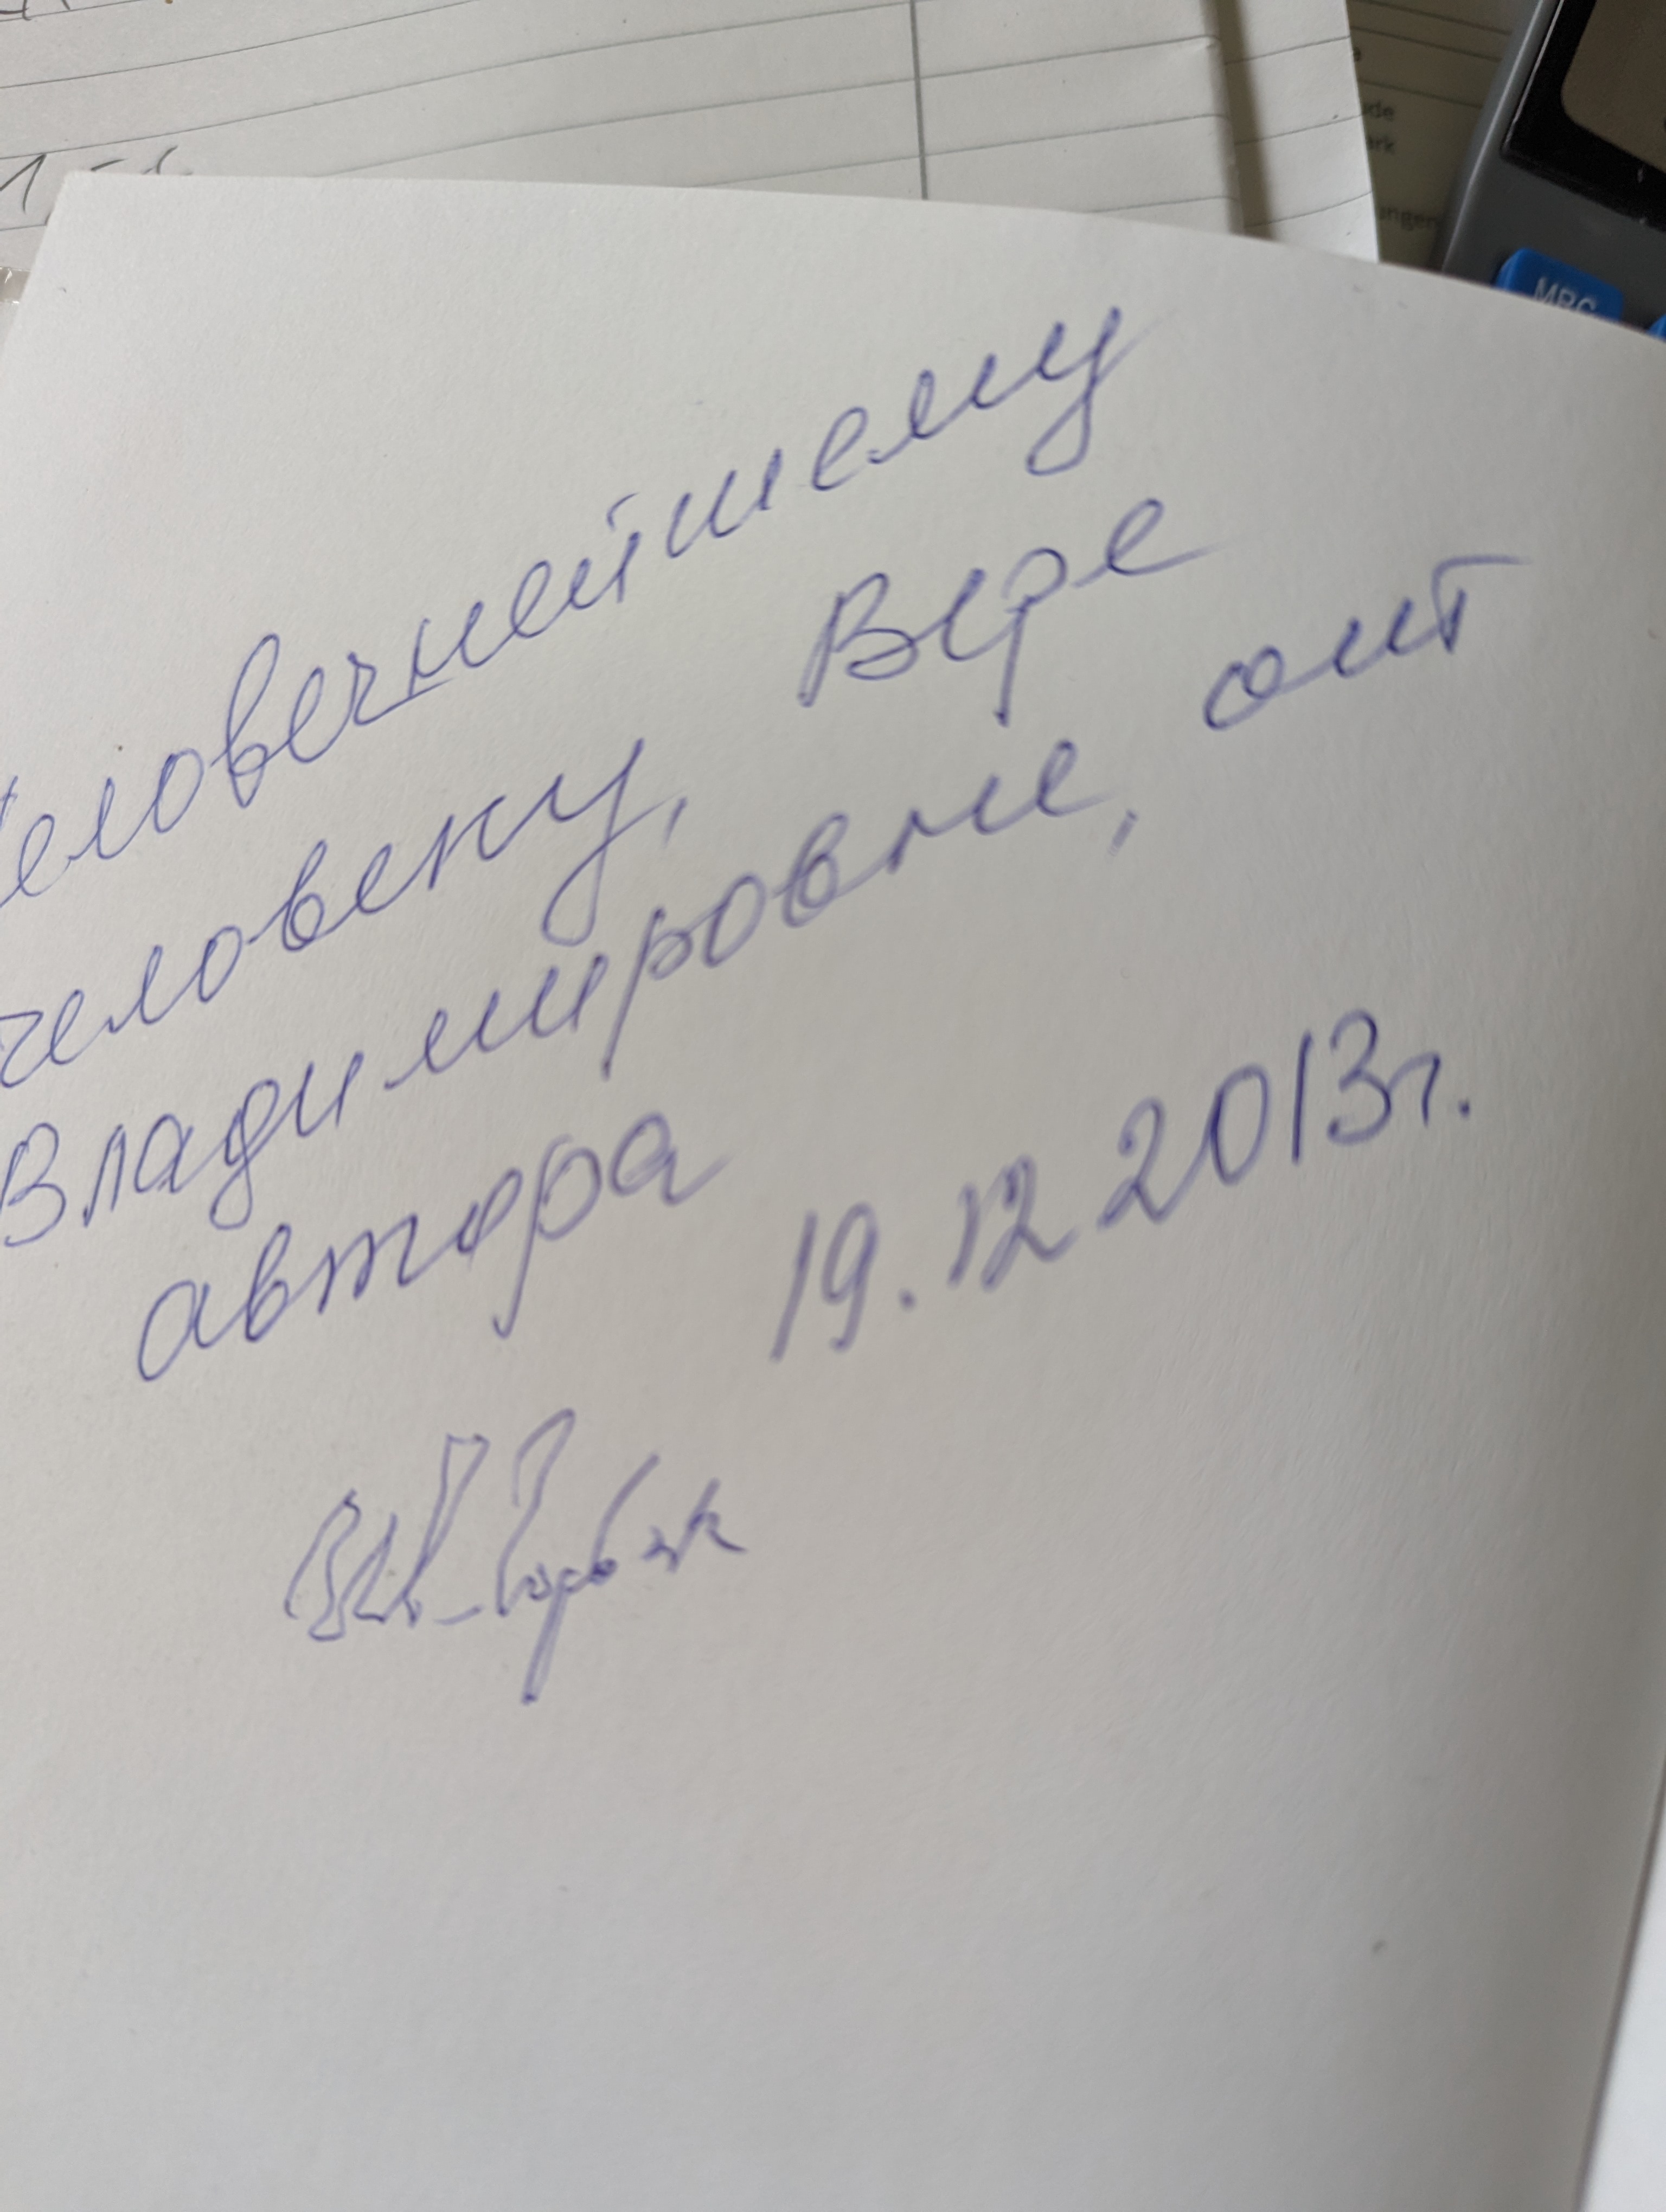 Человечнейшему
человеку, Вере
Владимировне, от
автора
19.12.2013г.
MRC